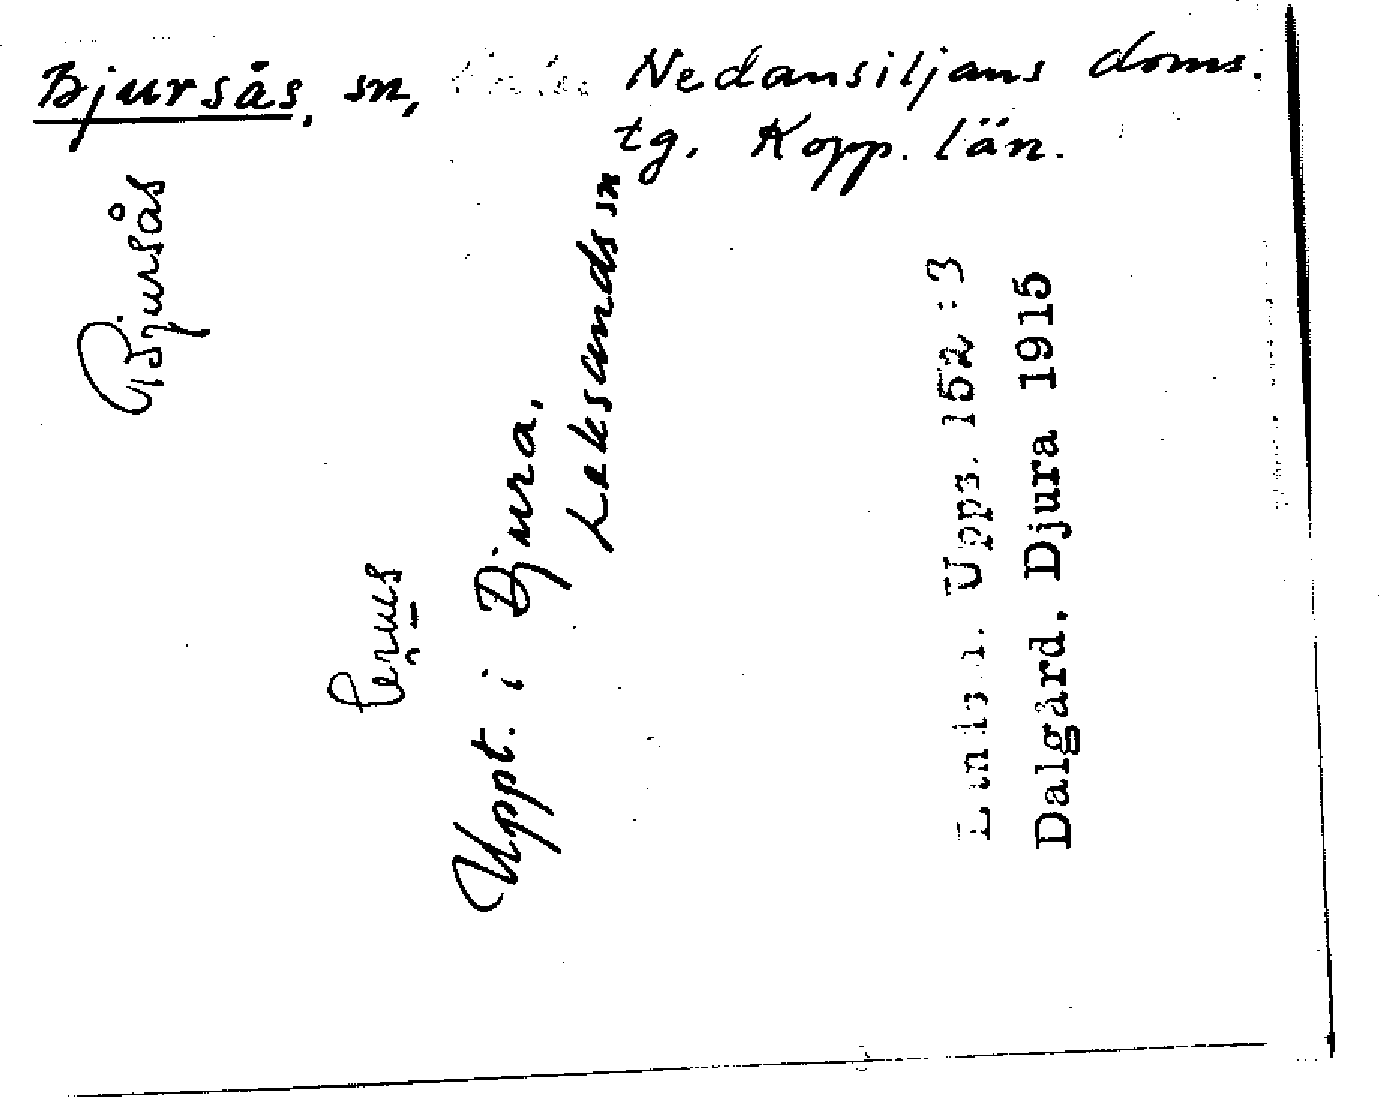 Bjursås, sn, Nedansiljans doms.
tg. Kopp. län.
Bjursås
Uppt. i Djura,
Leksands sn
Landsm. Upps. 152:3
Dalgård, Djura 1915